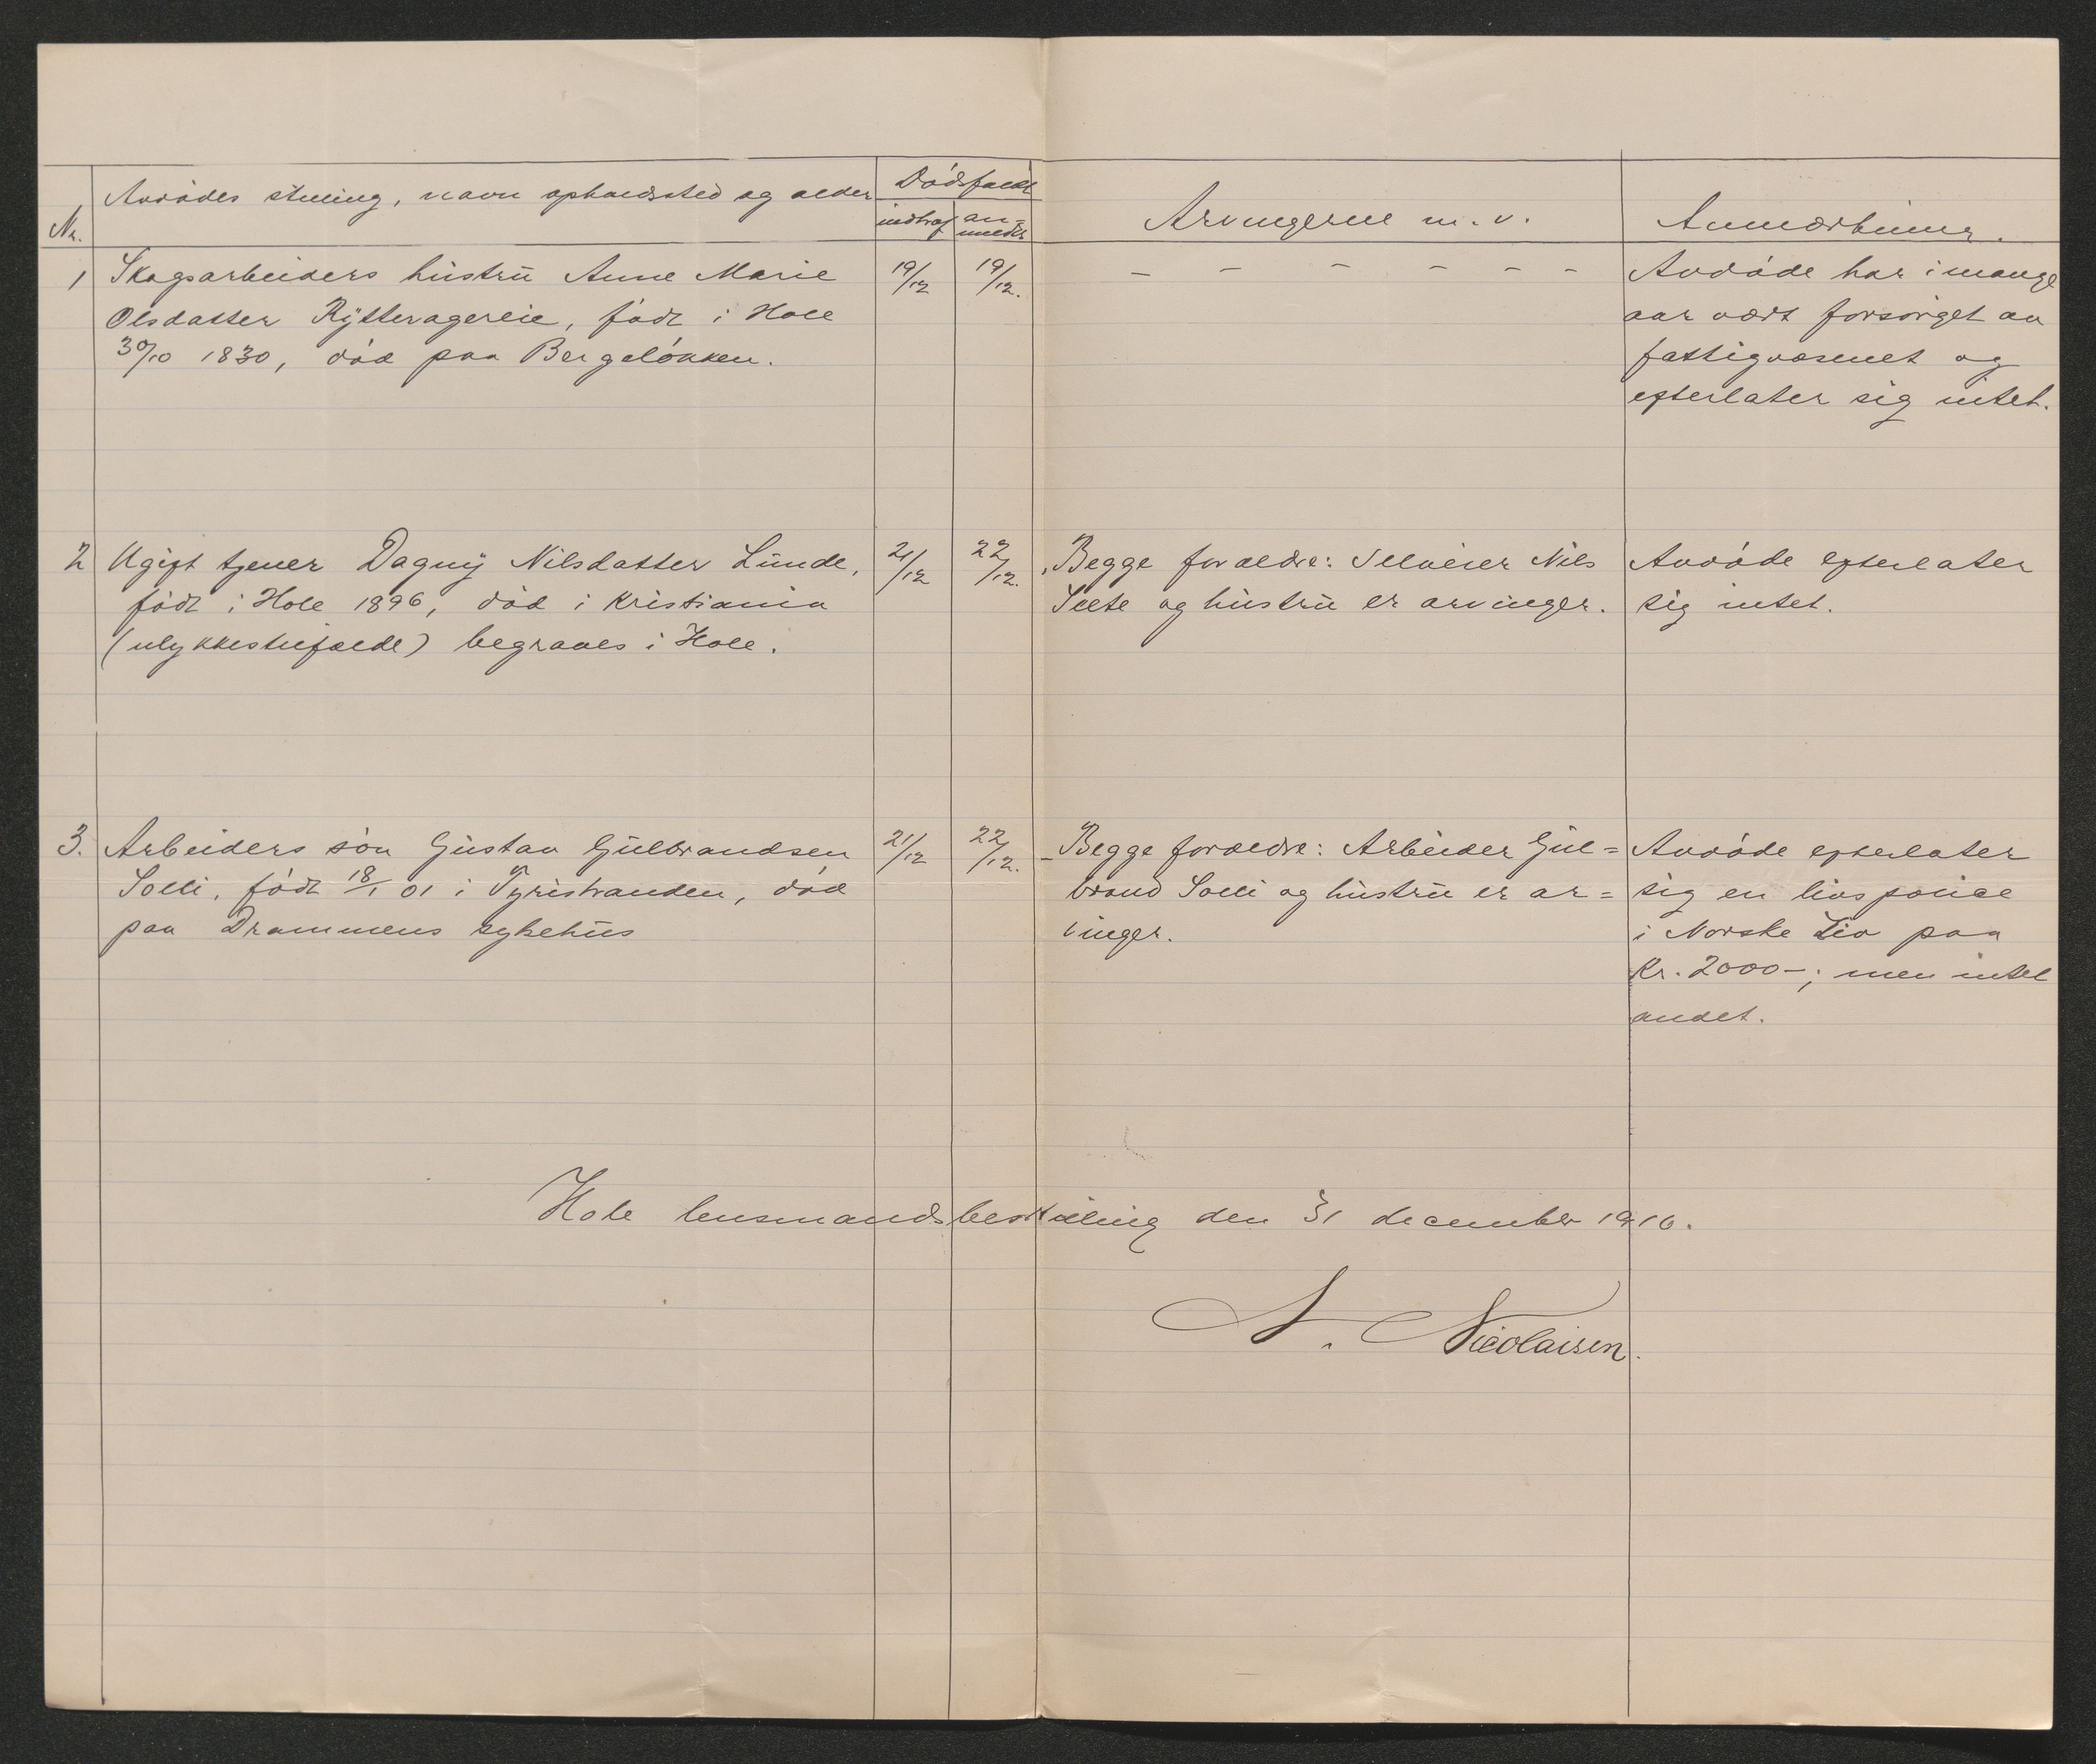 Nr.
Avdødes stilling, navn opholdssted og alder
Dødsfaldt
indtraf
an=
meldt
Arvingerne m. v.
Anmærkning.
1
Skogsarbeiders hustru Anne Marie
Olsdatter Rytteragereie, født i Hole
30/10 1830, død paa Bergeløkken.
19/12
19/12.
- - - - - -
Avdøde har i mange
aar vært forsørget av
fattigvæsenet og
efterlater sig intet.
2
Ugift tjener Dagny Nilsdatter Lunde,
født i Hole 1896, død i Kristiania
(ulykkestilfælde) begraves i Hole.
21/12
22/12.
Begge forældre: Selveier Nils
og hustru er arvinger.
Avdøde efterlater
sig intet.
3.
Arbeiders søn Gustav Gulbrandsen
Solli, født 18/1 01 i Tyristranden, død
paa Drammens sykehus
21/12
22/12.
Begge forældre: Arbeider Gul=
brand Solli og hustru er ar=
vinger.
Avdøde efterlater
sig en livspolice
i Norske Liv paa
Kr. 2000-; men intet
andet.
Hole lensmandsbestilling den 31 december 1916.
N. Nicolaisen.